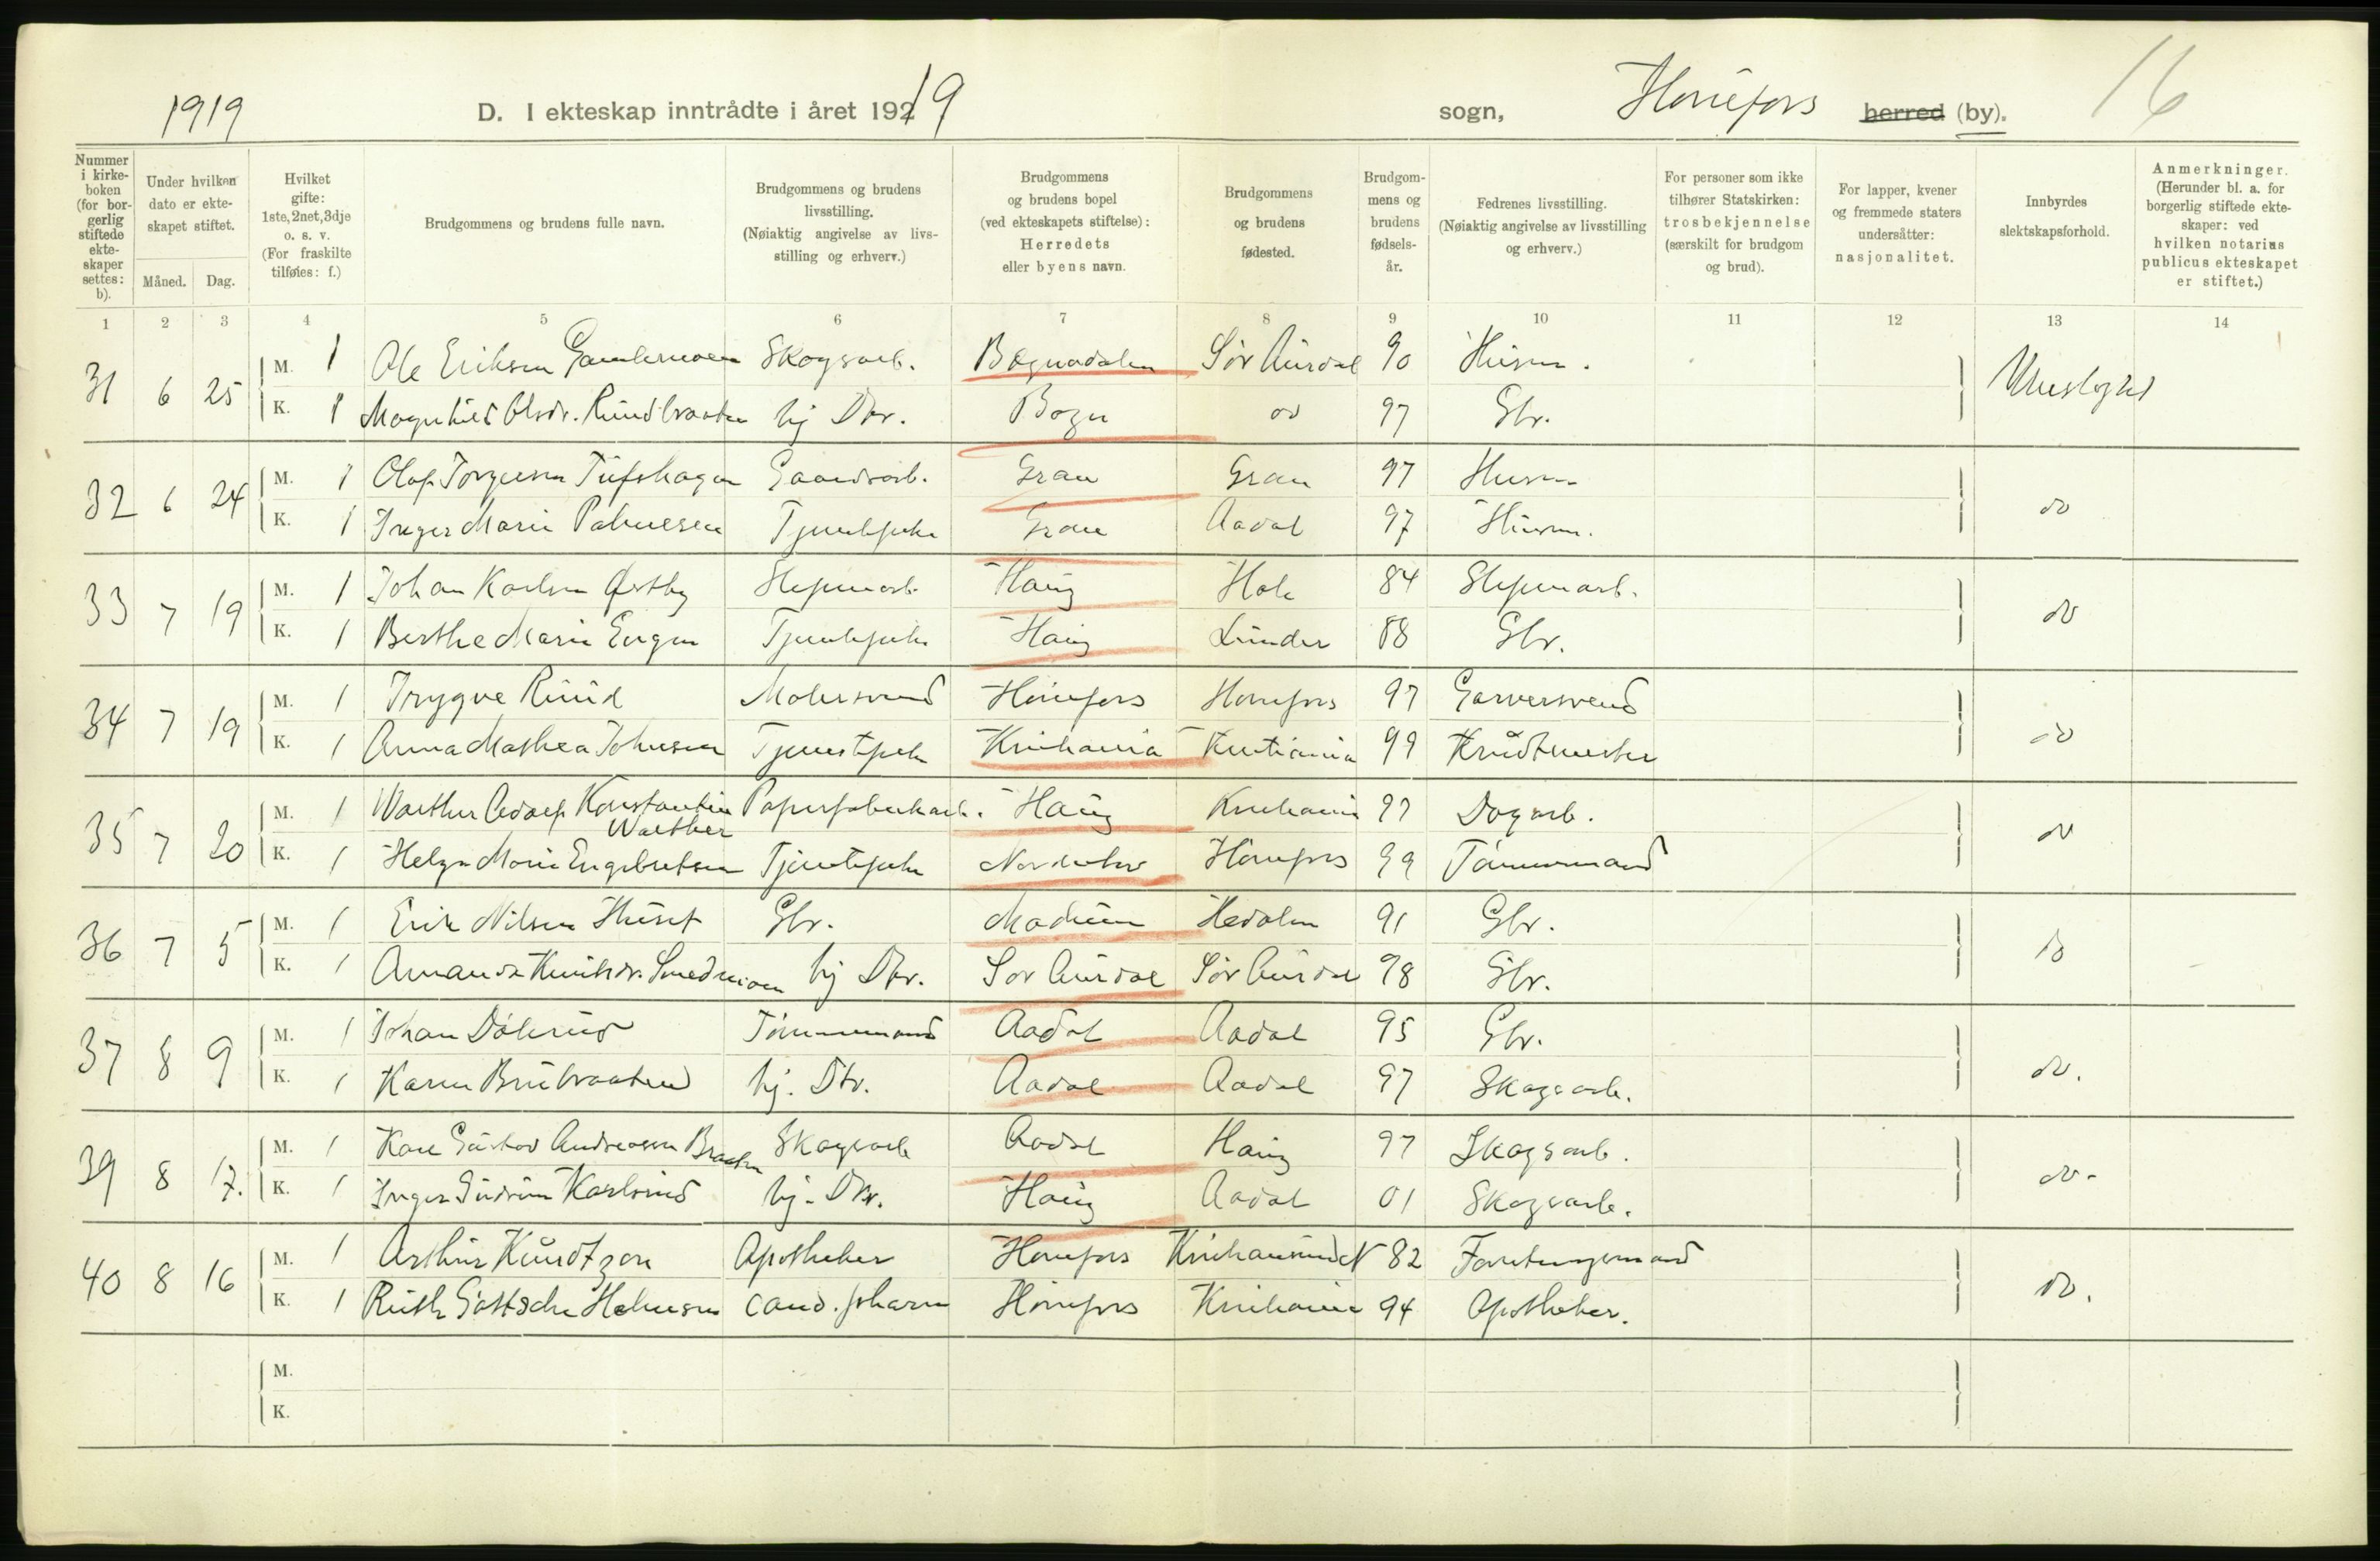 1919 D. I ekteskap inntrådte i året 19219 sogn, Hønefors herred (by). 16
Nummer i kirkeboken (for borgerlig stiftede ekteskaper settes: b).
Under hvilken dato er ekteskapet stiftet.
Måned. Dag.
Hvilket gifte: 1ste, 2net, 3dje o. s. v. (For fraskilte tilføies: f.)
Brudgommens og brudens fulle navn.
Brudgommens og brudens livsstilling. (Nøiaktig angivelse av livsstilling og erhverv.)
Brudgommens og brudens bopel (ved ekteskapets stiftelse): Herredets eller byens navn.
Brudgommens og brudens fødested.
Brudgommens og brudens fødselsår.
Fedrenes livsstilling. (Nøiaktig angivelse av livsstilling og erhverv.)
For personer som ikke tilhører Statskirken: trosbekjennelse (særskilt for brudgom og brud).
For lapper, kvener og fremmede staters undersåtter: nasjonalitet.
Innbyrdes slektskapsforhold.
Anmerkninger. (Herunder bl. a. for borgerlig stiftede ekteskaper: ved hvilken notarius publicus ekteskapet er stiftet.)
1 2 3 4 5 6 7 8 9 10 11 12 13 14
31 6 25 M. 1 Ole Eriksen Skogsarb. Begnadalen Sør Aurdal 90 Husm. Ubeslegtet
K. 1 Magnhild Olsdr. Rundbraaten hj Dtr. Begn do 97 Gbr.
32 6 24 M. 1 Olaf Torgersen Tufshagen Gaardsarb. Gran Gran 97 Husm. do
K. 1 Inger Marie Palmesen Tjenestepike Gran Aadal 97 Husm.
33 7 19 M. 1 Johan Karlsen Østby Sliperiarb. Haug Hole 84 Sliperiarb. do
K. 1 Berthe Marie Engen Tjenestepike Haug Lunder 88 Gbr.
34 7 19 M. 1 Trygve Ruud Malersvend Hønefors Hønefors 97 Garversvend do
K. 1 Anna Mathea Johnsen Tjenestepike Kristiania Kristiania 99 Krudtmester
35 7 20 M. 1 Walther Adolf Konstantin Walther Papirfabrikarb. Haug Kristiania 97 Dagarb. do
K. 1 Helga Marie Engebretsen Tjenestepike Norderhov Hønefors 99 Tømmermand
36 7 5 M. 1 Erik Nilsen Huset Gbr. Modum Hedalen 91 Gbr. do
K. 1 Amanda Smedmoen hj Dtr. Sør Aurdal Sør Aurdal 98 Gbr.
37 8 9 M. 1 Johan Dølerud Tømmermand Aadal Aadal 95 Gbr. do.
K. 1 Karen Brubraaten hj. Dtr. Aadal Aadal 97 Skogsarb.
39 8 17. M. 1 Kaare Gustav Andreassen Braaten Skogsarb Aadal Haug 97 Skogsarb. do.
K. 1 Inger Gudrun Karlsrud hj. Dtr. Haug Aadal 01 Skogsarb.
40 8 16 M. 1 Arthur Knudtzon Apotheker Hønefors Kristiansund N 82 Forretningsmand do.
K. 1 Ruth Gottsche Helmesen cand. pharm Hønefors Kristiania 94 Apotheker.
M.
K.